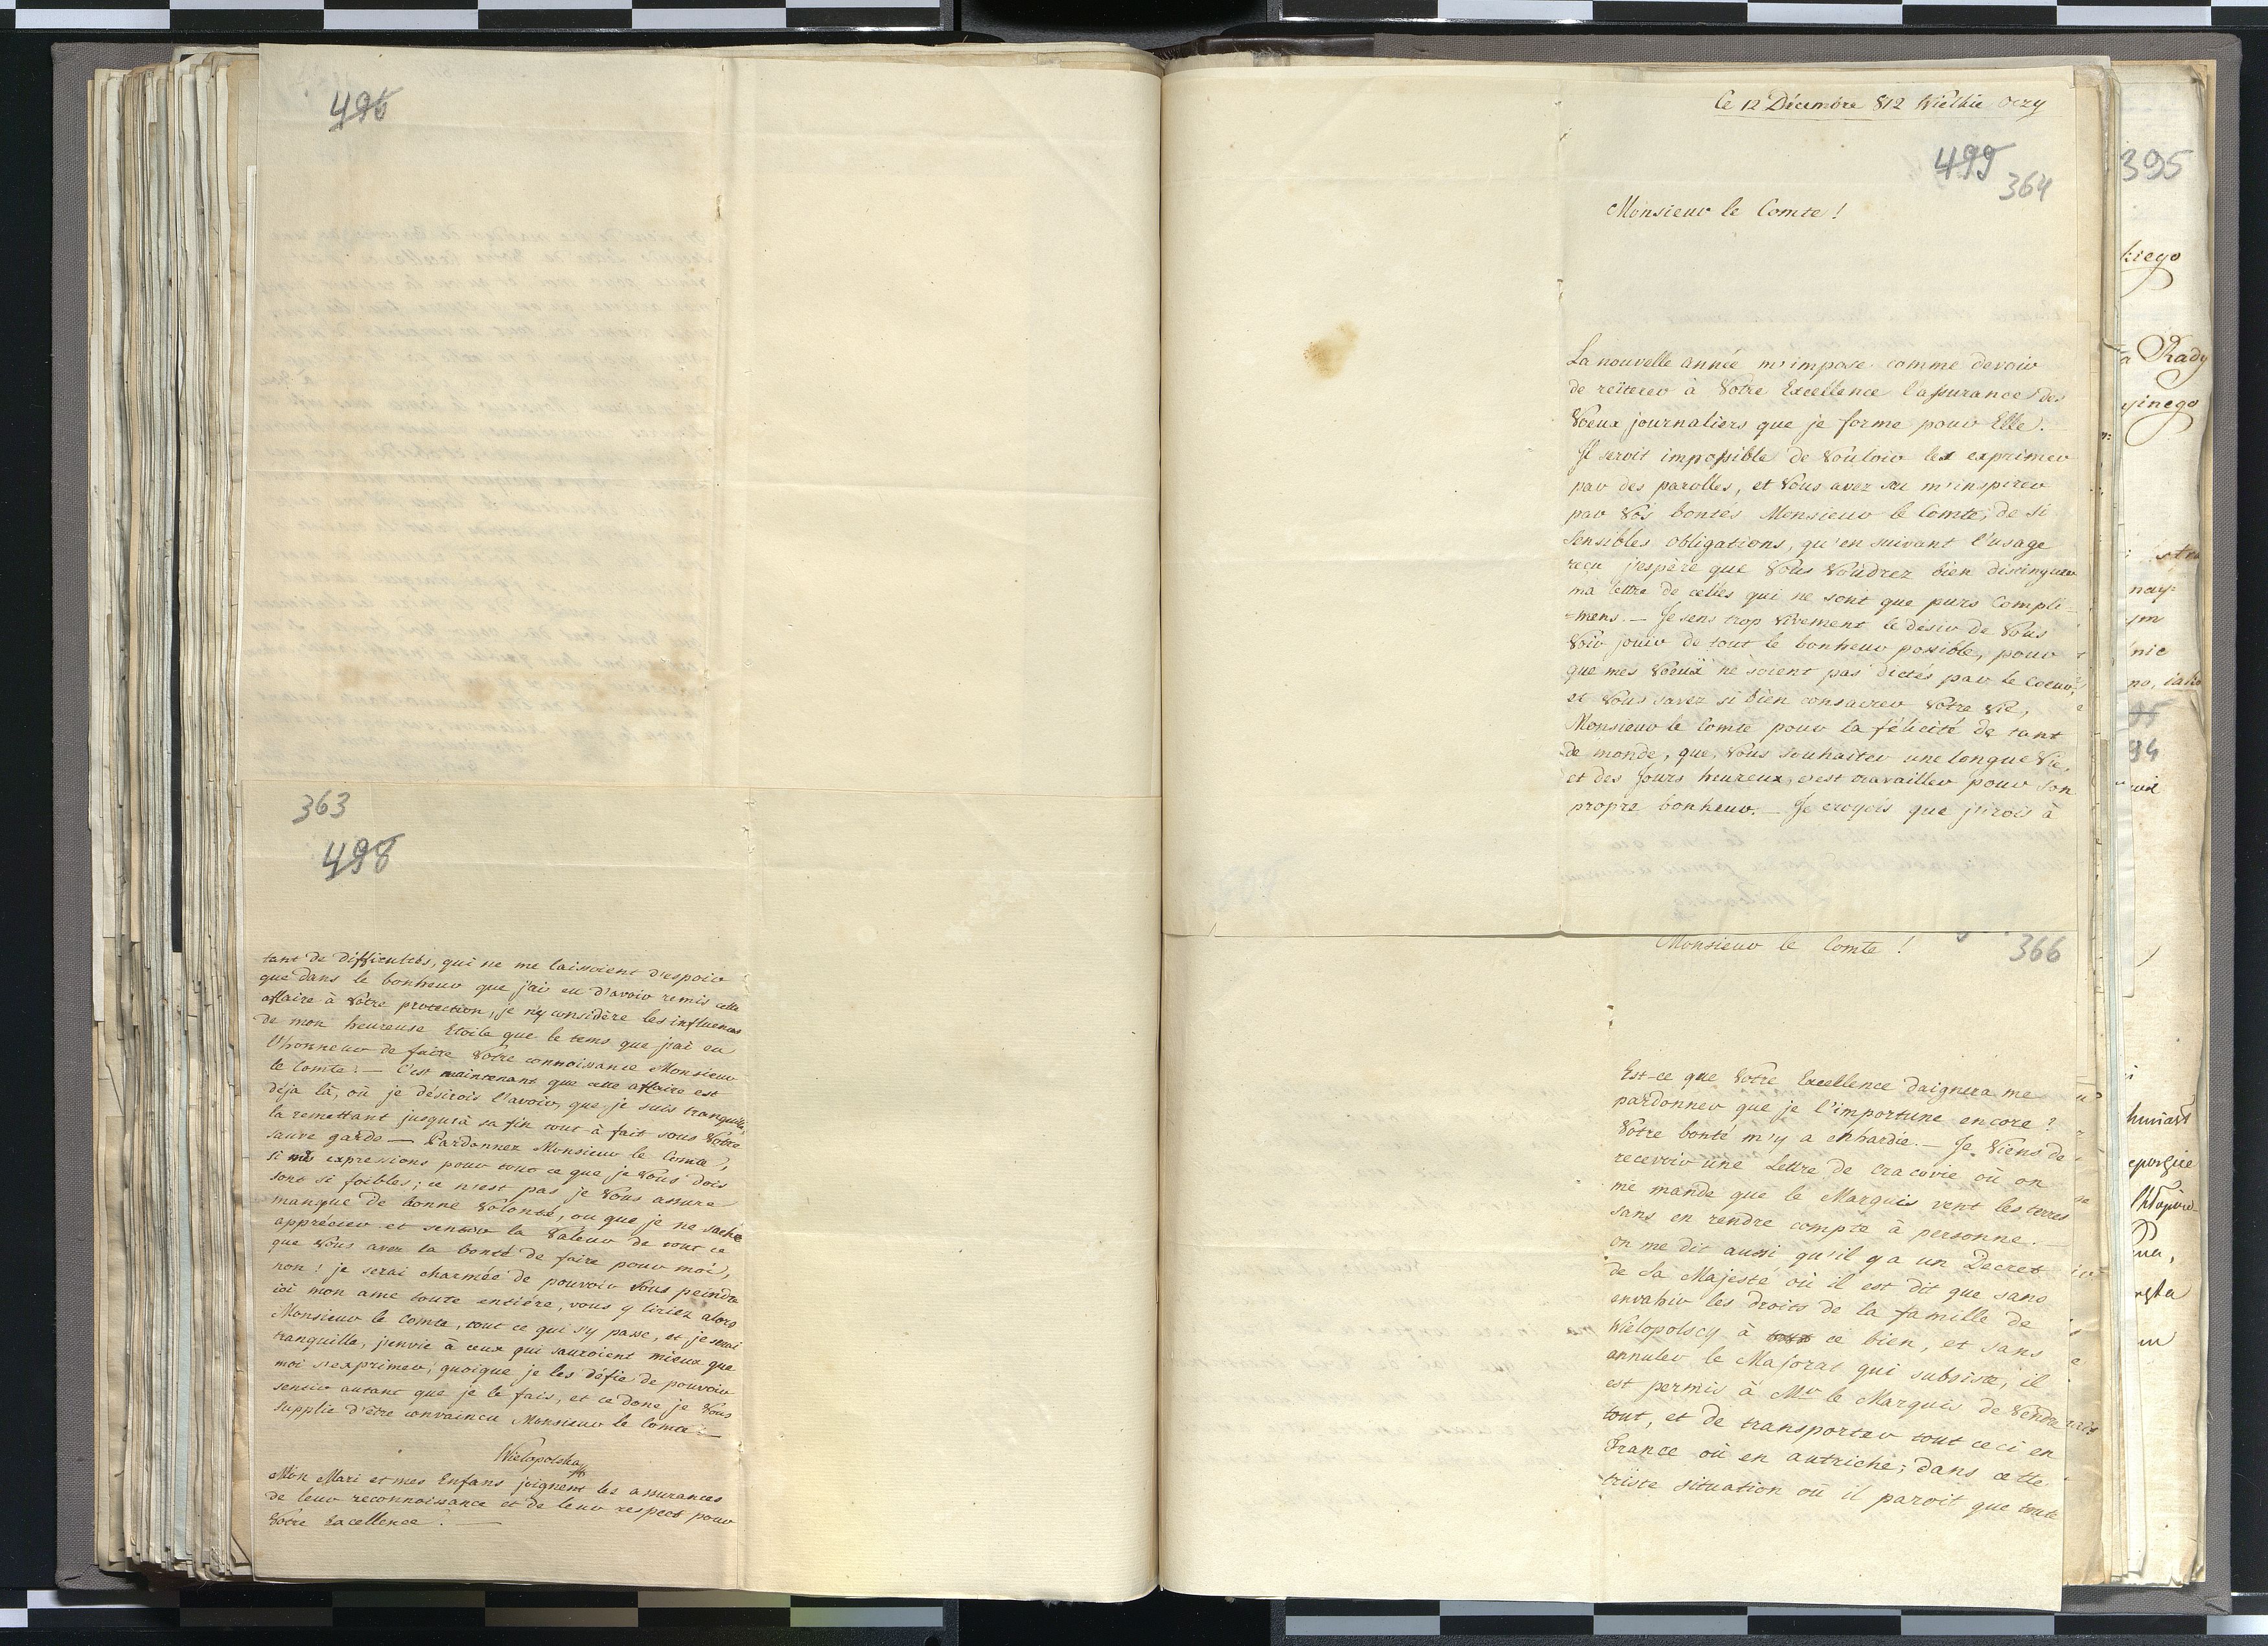 496
363
498
tant de difficultés, qui ne me laissoient d'espoir
que dans le bonheur que j'ai eu d'avoir remis cette
affaire à Votre protection, je n'y considère les influences
de mon heureuse Etoile que le tems que j'ai eu
l'honneur de faire Votre connoissance Monsieur
le Comte. — C'est maintenant que cette affaire est
déja là, où je désirois l'avoir, que je suis tranquille,
la remettant jusqu'à sa fin tout à fait sous Votre
sauve garde — Pardonnez Monsieur le Comte,
si mes expressions pour tout ce que je Vous dois
sont si foibles; ce n'est pas je Vous assure
manque de bonne Volonté, ou que je ne sache
apprécier et sentir la Valeur de tout ce
que Vous avez la bonté de faire pour moi,
non! je serai charmée de pouvoir Vous peindre
ici mon ame toute entiére, vous y liriez alors
Monsieur le Comte, tout ce qui s'y passe, et je serai
tranquille, j'envie à ceux qui sauroient mieux que
moi s'exprimer, quoique je les défie de pouvoir
sentir autant que je le fais, et ce donc je Vous
supplie d'être convaincu Monsieur le Comte. —
Wielopolska
Mon Mari et mes Enfans joignent les assurances
de leur reconnoissance et de leur respect pour
Votre Excellence. —
Ce 12 Décembre 812 Wielkie Oczy
499
364
Monsieur le Comte!
La nouvelle année m'impose comme devoir
de reïterer à Votre Excellence l'assurance des
Voeux journaliers que je forme pour Elle.
Il seroit impossible de Vouloir les exprimer
par des parolles, et Vous avez su m'inspirer
par Vos bontés Monsieur le Comte, de si
sensibles obligations, qu'en suivant l'usage
reçu j'espère que Vous Voudrez bien distinguer
ma lettre de celles qui ne sont que purs Compli-
=mens. — Je sens trop Vivement le désir de Vous
Voir jouir de tout le bonheur possible, pour
que mes Voeux ne soient pas dictés par le Coeur,
et Vous savez si bien consacrer Votre Vie,
Monsieur le Comte pour la félicité de tant
de monde, que, Vous souhaiter une longue Vie,
et des Jours heureux, c'est travailler pour son
propre bonheur. — Je croyois que j'irois à
Monsieur le Comte!
366
Est-ce que Votre Excellence daignera me
pardonner que je l'importune encore?
Votre bonté m'y a enhardie. — Je Viens de
recevoir une Lettre de Cracovie où on
me mande que le Marquis vent les terres
sans en rendre compte à personne. —
on me dit aussi qu'il y a un Decret
de Sa Majesté où il est dit que sans
envahir les droits de la famille de
Wielopolscy à ce bien, et sans
annuler le Majorat qui subsiste, il
est permis à Mr le Marquis de Vendre
tout, et de transporter tout ceci en
France où en autriche; dans cette
triste situation où il paroit que toute
395
kiego
Rady
yinego
nay-
ym
nie
94